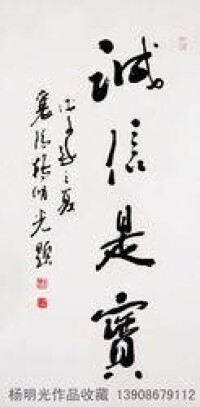 誠信是寶
之夏
襄陽楊明光題
杨明光作品收藏 13908679112